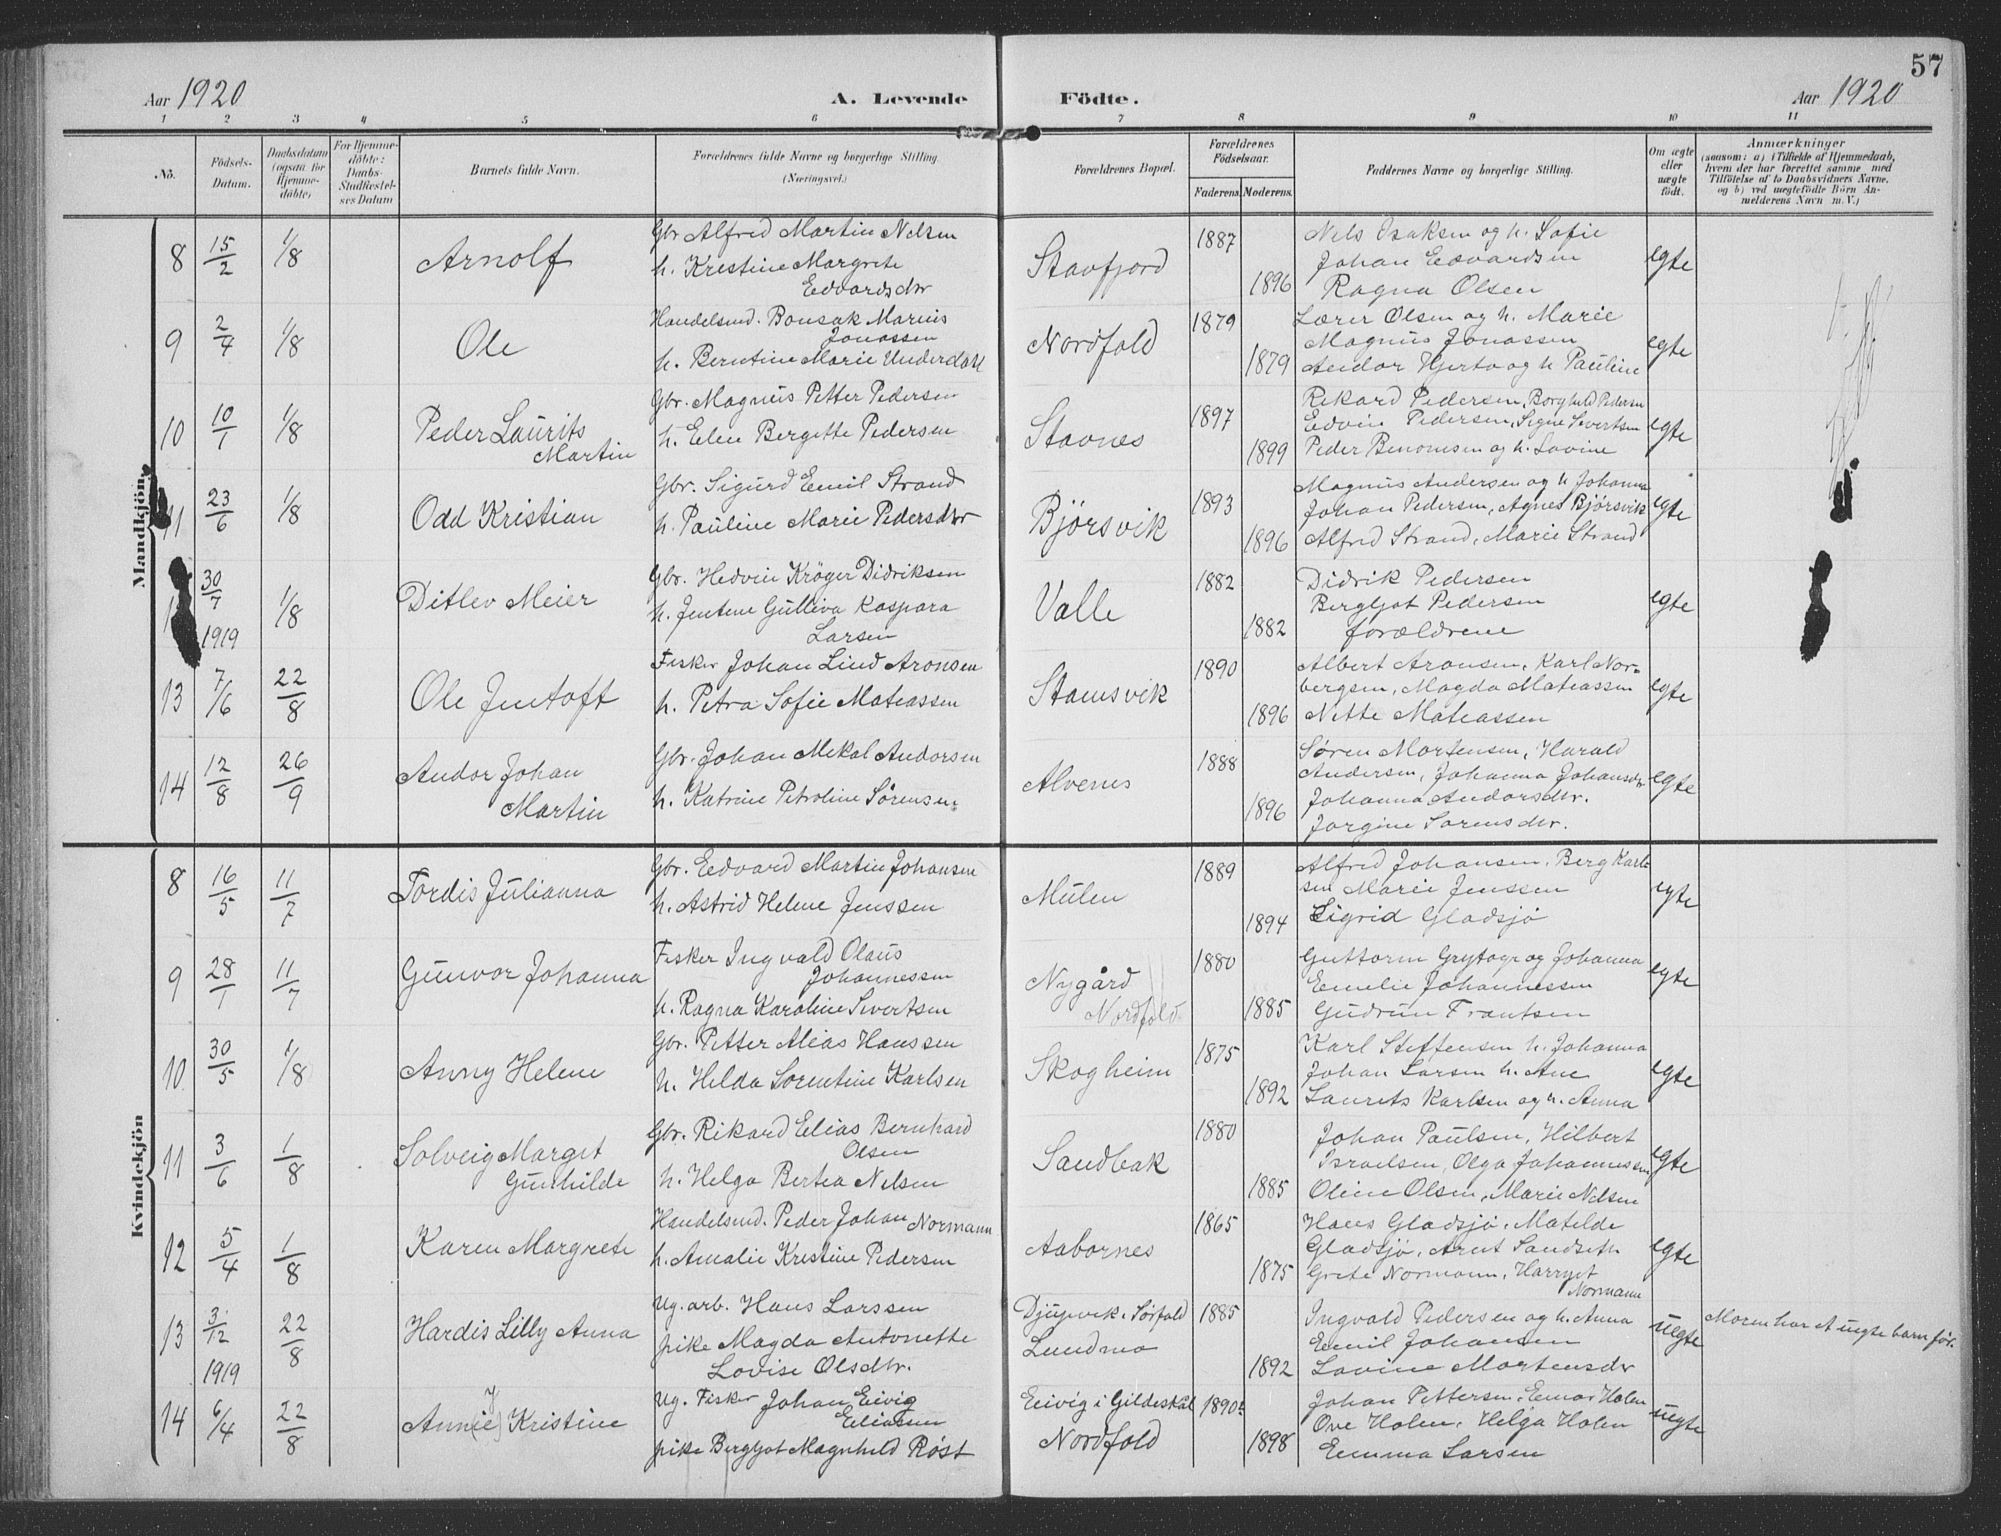 57
Aar 1920 A. Levende Födte. Aar 1920
1 2 3 4 5 6 7 8 9 10 11
No. Födsels-Datum. Daabsdatum (ogsaa for Hjemmedöbte) For Hjemmedöbte: Daabs-Stadfæstelses Datum Barnets fulde Navn. Forældrenes fulde Navne og borgerlige Stilling. (Næringsvei.) Forældrenes Bopæl. Forældrenes Födselsaar. Faderens. Moderens. Faddernes Navne og borgerlige Stilling. Om ægte eller uægte födt. Anmærkninger (saasom: a) i Tilfælde af Hjemmedaab, hvem der har forrettet samme med Tilföielse af to Daabsvidners Navne, og b) ved uægtefödte Börn Anmelderens Navn m. V.)
Mandkjön
8 15/2 1/8 Arnolf
Gbr Alfred Martin Nelsen
h. Kristine Margrete
Edvardsdtr
Stavfjord 1887 1896
Nels Isaksen og h. Sofie
Johan Edvardsen
Ragna Olsen
egte
9 2/4 1/8 Ole
Handelsmd. Bonsak Marius
Jonassen
h. Berntine Marie Underdahl
Nordfold 1879 1879
Lærer Olsen og h. Marie
Magnus Jonassen
Andor Hjertø og h Pauline
egte
10 10/1 1/8 Peder Laurits
Martin
Gbr. Magnus Petter Pedersen
h. Elen Bergette Pedersen
Stavnes 1897 1899
Rikard Pedersen, Borghild Pedersen
Edvin Pedersen, Signe Sivertsen
Peder Benomsen og h. Lovine
egte
11 23/6 1/8 Odd Kristian
Gbr. Sigurd Emil Strand
h. Pauline Marie Pedersdtr
Bjørsvik 1893 1896
Magnus Andersen og h Johanna
Johan Pedersen, Agnes Bjørsvik
Alfred Strand, Marie Strand
egte
1 30/7 1919 1/8 Ditlev Meier
Gbr. Hedvin Krøger Didriksen
h. Jentene Gulliva Kaspara
Larsen
Valle 1882 1882
Didrik Pedersen
Bergljot Pedersen
forældrene
egte
13 7/6 22/8 Ole Jentoft
Fisker Johan Lind Aronsen
h. Petra Sofie Mateassen
Stamsvik 1890 1896
Albert Aronsen, Karl Nor-
bergsen, Magda Mateassen
Nette Mateassen
egte
14 12/8 26/9 Andor Johan
Martin
Gbr. Johan Mekal Andorsen
h. Katrine Petroline Sørensen
Alvenes 1888 1896
Søren Mortensen, Harald
Andersen, Johanna Johansdtr
Johanna Andorsdtr.
Jørgine Sørensdtr.
egte
Kvindekjön
8 16/5 11/7 Tordis Julianna
Gbr. Edvard Martin Johansen
h. Astrid Helene Jenssen
Mulen 1889 1894
Alfred Johansen, Berg Karl-
sen Marie Jenssen
Sigrid Gladsjø
egte
9 28/1 11/7 Gunvor Johanna
Fisker Ingvald Olaus
Johannessen
h. Ragna Karoline Sivertsen
Nygård
Nordfold 1880 1885
Guttorm Grytøyr og Johanna
Emelie Johannessen
Gudrun Frantsen
egte
10 30/5 1/8 Anny Helene
Gbr. Petter Alias Hanssen
h. Helda Sorentine Karlsen
Skogheim 1875 1892
Karl Steffensen h. Johanna
Johan Larsen h. Ane
Laurits Karlsen og h. Anna
egte
11 3/6 1/8 Solveig Margit
Gunhilde
Gbr. Rikard Elias Bernhard
Olsen
h. Helga Bertea Nelsen
Sandbak 1880 1885
Johan Paulsen, Hilbert
Israelsen, Olga Johannessen
Oline Olsen, Marie Nelsen
egte
12 5/4 1/8 Karen Margrete
Handelsmd. Peder Johan Normann
h. Amalie Kristine Pedersen
Aabornes 1865 1875
Hans Gladsjø, Matelde
Gladsjø, Arnt Sandseth
Grete Normann, Harryet
Normann
egte
13 3/12 1919 22/8 Hardis Lilly Anna
Ug. arb. Hans Larssen
pike Magda Antonette
Lovise Olsdtr.
Djupvik i Sørfold
Lundmo 1885 1892
Ingvald Pedersen og h. Anna
Emil Johansen
Lovine Mortensdtr
uegte
Moren har et uegte barn før.
14 6/4 22/8 Ann(ie) y Kristine
Ug. Fisker Johan Eivig
Eliassen
pike Bergljot Magnhild Røst
Eivig i Gildeskål
Nordfold 1890 1898
Johan Pettersen, Einar Holen
Ove Holen, Helga Holen
Emma Larsen
uegte